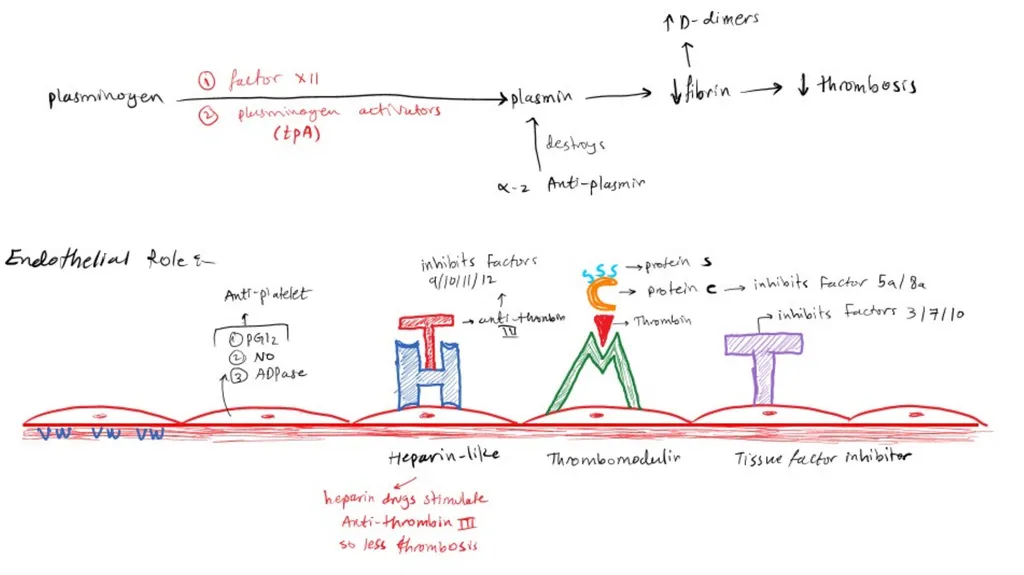 ↑ D-dimers
plasminogen
① factor XII
② plasminogen activators
(tPA)
plasmin
↓ fibrin
↓ thrombosis
destroys
α-2 Anti-plasmin
Endothelial Role :-
Anti-platelet
① PGI2
② NO
③ ADPase
inhibits factors
9/10/11/12
anti-thrombin
III
SSS
protein S
C
protein C
inhibits Factor 5a/8a
Thrombin
inhibits Factors 3/7/10
T
H
M
T
VW VW VW
Heparin-like
Thrombomodulin
Tissue factor inhibitor
heparin drugs stimulate
Anti-thrombin III
so less thrombosis